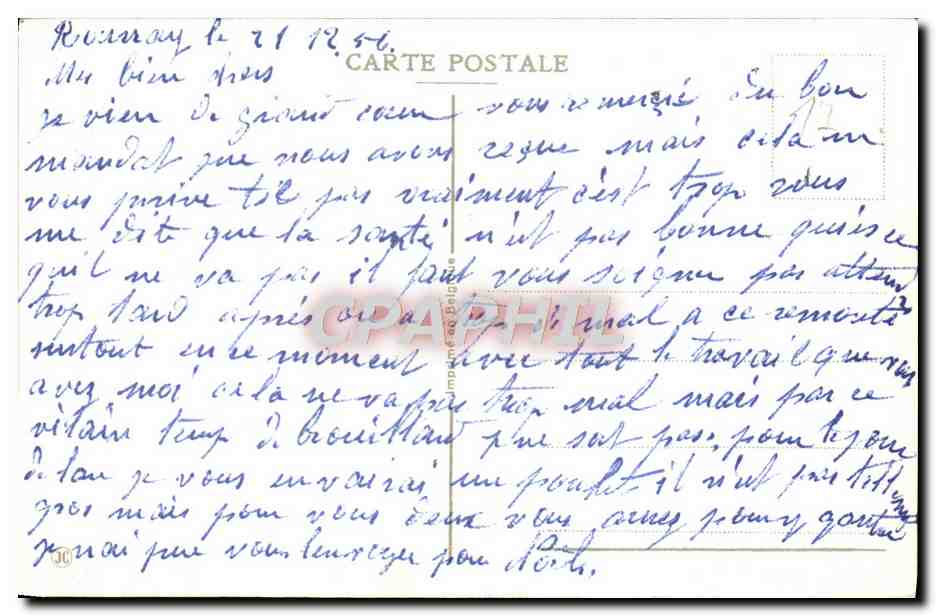 le 21 12 56.
CARTE POSTALE
Mes bien chers
je vien de grand cœur vous remercié du bon
mandat que nous avons reçue mais cela ne
vous prive til pas vraiment c'est trop vous
me dite que la santé n'est pas bonne qu'es ce
qu'il ne va pas il faut vous soigne pas attend
trop tard après on a trop de mal a ce remonté
surtout en ce moment avec tout le travail que vous
avez moi cela ne va pas trop mal mais par ce
vilain temp de brouillard je ne sort pas, pour le jour
de lan je vous envairai un poulet il n'est pas tellement
gros mais pour vous deux vous aurez pour y gouter
je nai pue vous lenvoyer pour Noël.
Imprimé en Belgique
JC
CPAPHIL